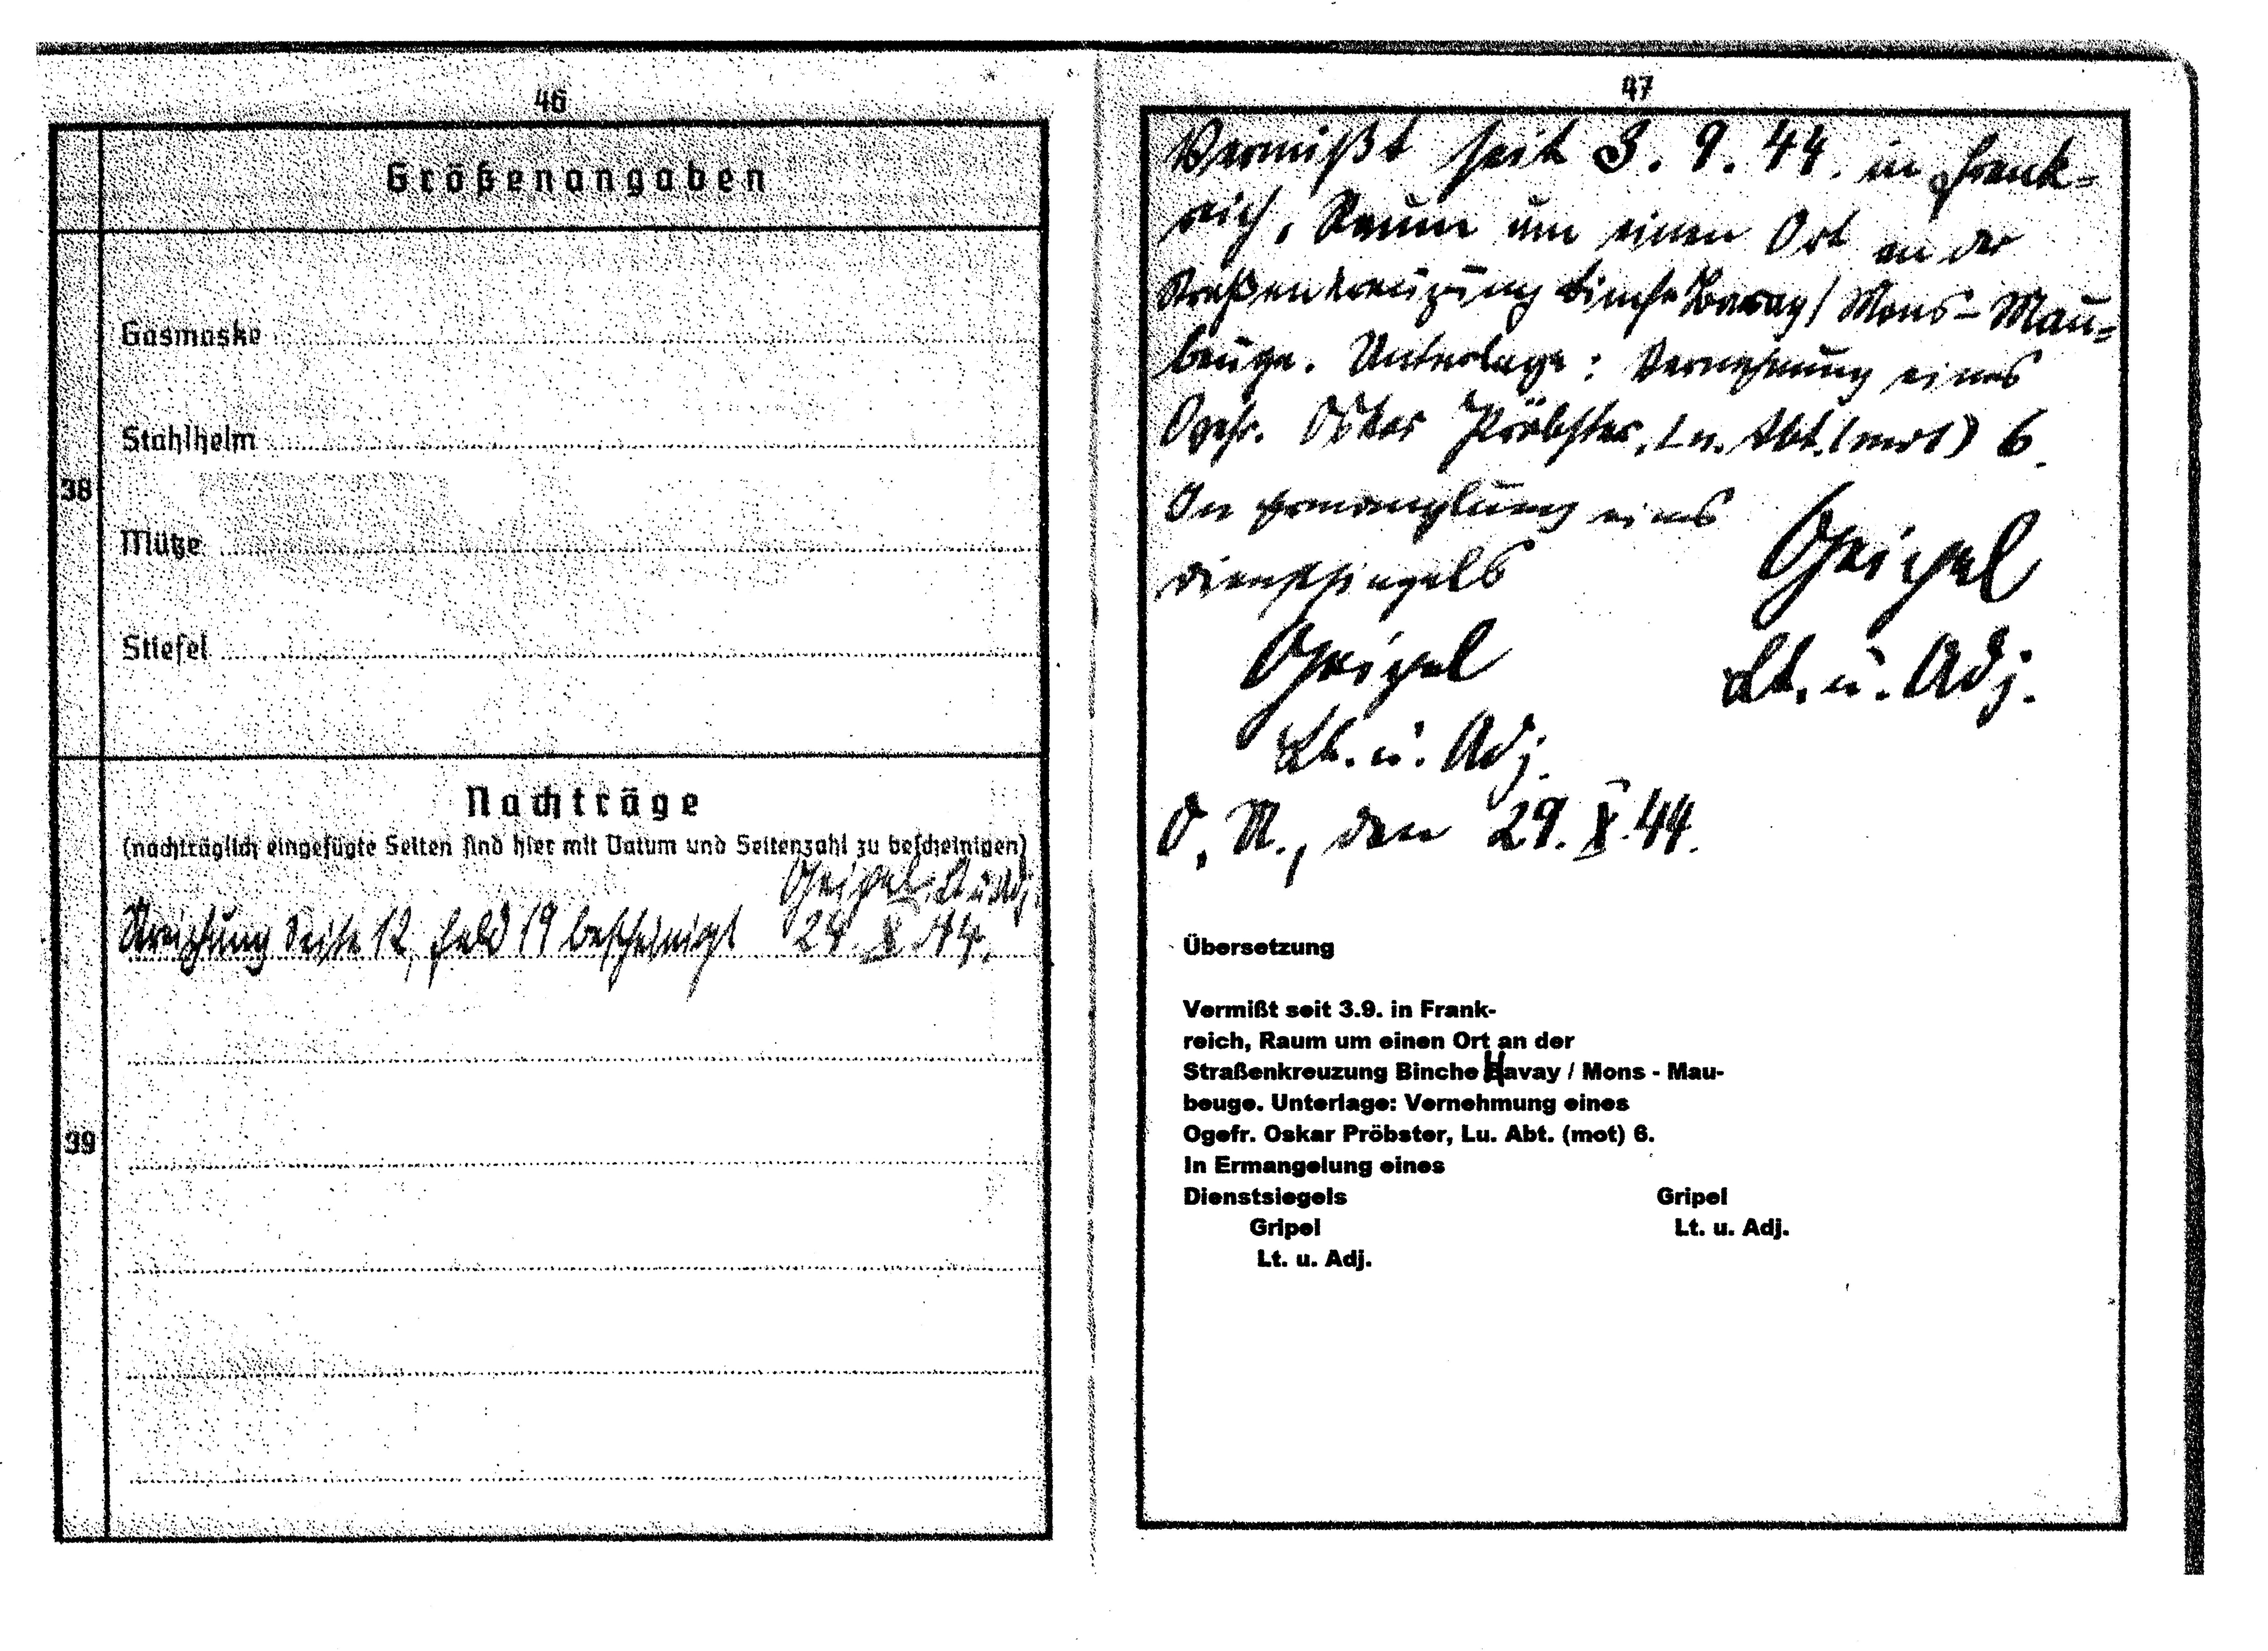 46
Größenangaben
Gasmaske
Stahlhelm
38
Mütze
Stiefel
Nachträge
(nachträglich eingefügte Seiten sind hier mit Datum und Seitenzahl zu bescheinigen)
Geipel, Lt u Adj.
Streichung Seite 12, Feld 19 bescheinigt 24. X. 44.
39
47
Vermißt seit 3. 9. 44. in Frank-
reich, Raum um einen Ort an der
Straßenkreuzung Binche Bavay / Mons - Mau-
beuge. Unterlage: Vernehmung eines
Ogefr. Oskar Pröbster, Ln. Abt. (mot) 6.
In Ermanglung eines
Dienstsiegels
Geipel
Lt. u. Adj.
Geipel
Lt. u. Adj.
O. U., den 29. X. 44.
Übersetzung
Vermißt seit 3.9. in Frank-
reich, Raum um einen Ort an der
Straßenkreuzung Binche Havay / Mons - Mau-
beuge. Unterlage: Vernehmung eines
Ogefr. Oskar Pröbster, Lu. Abt. (mot) 6.
In Ermangelung eines
Dienstsiegels Gripel
Gripel Lt. u. Adj.
Lt. u. Adj.